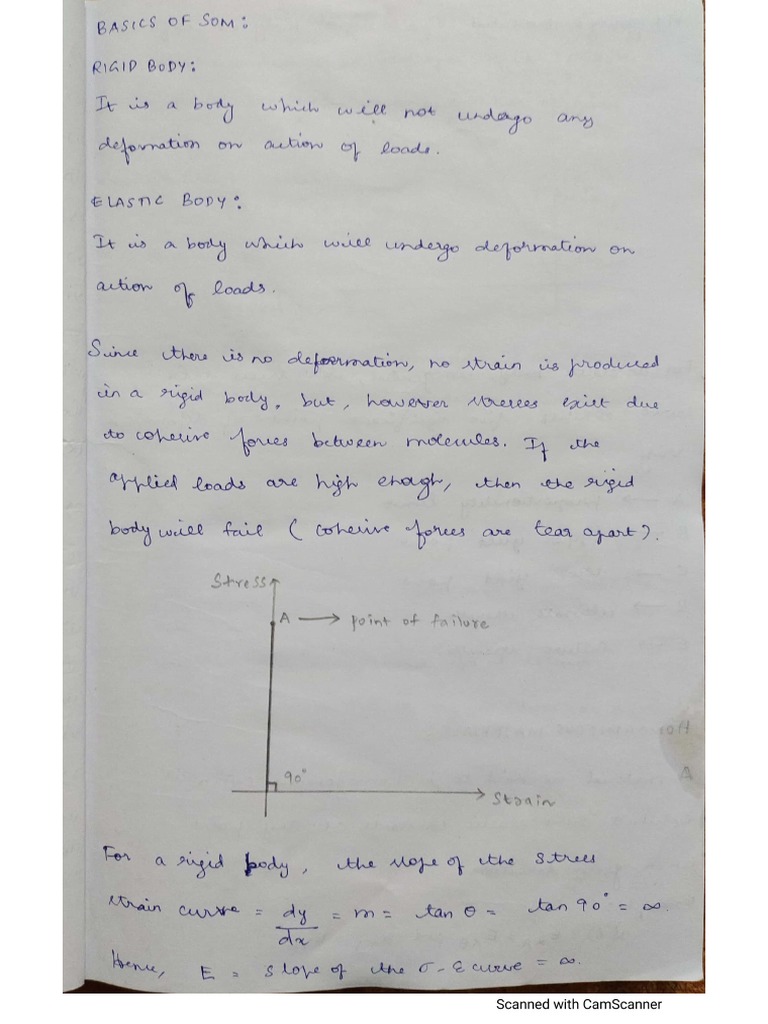 BASICS OF SOM:
RIGID BODY:
It is a body which will not undergo any
deformation on action of loads.
ELASTIC BODY:
It is a body which will undergo deformation on
action of loads.
Since there is no deformation, no strain is produced
in a rigid body, but, however stresses exist due
to cohesive forces between molecules. If the
applied loads are high enough, then the rigid
body will fail (cohesive forces are tear apart).
Stress
A → point of failure
90°
Strain
For a rigid body, the slope of the stress
strain curve = dy/dx = m = tan θ = tan 90° = ∞.
Hence, E = slope of the σ-ε curve = ∞.
Scanned with CamScanner